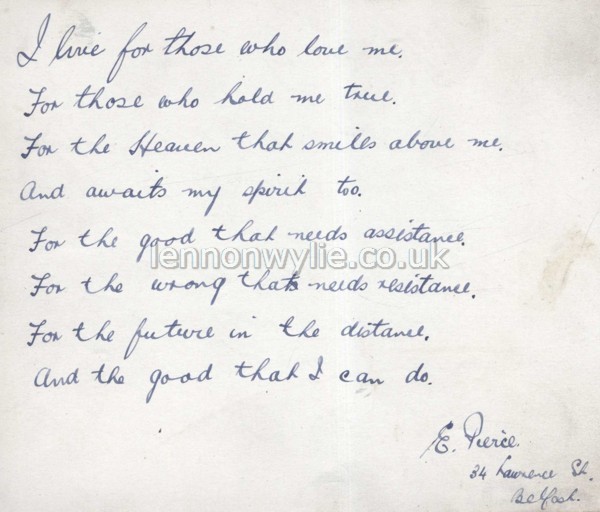 I live for those who love me.
For those who hold me true.
For the Heaven that smiles above me,
And awaits my spirit too.
For the good that needs assistance.
lennonwylie.co.uk
For the wrong that needs resistance.
For the future in the distance,
And the good that I can do.
E. Pierce.
34 Lawrence St.
Belfast.